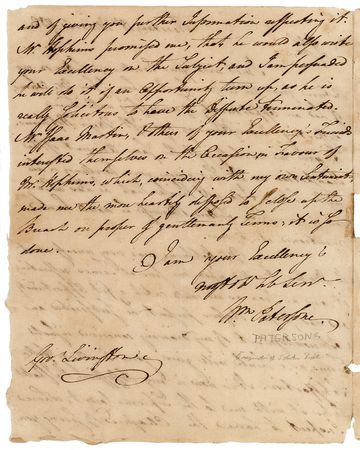 and of giving you further Information respecting it.
Mr Hopkins promised me, that he would also write
your Excellency on the Subject, and I am persuaded
he will do it if an Opportunity turn up, as he is
really solicitous to have the Dispute terminated.
Mr Isaac Martin, & others of your Excellency's Friends
interested themselves on the Occasion in Favour of
Mr. Hopkins, which, coinciding with my own Sentiments
made me the more heartily disposed to close up the
Breach on proper & gentlemanly Terms; it is so
done.
I am your Excellency's
most ob hb Serv.
Wm Paterson.
PATERSONS
Gov. Livingston